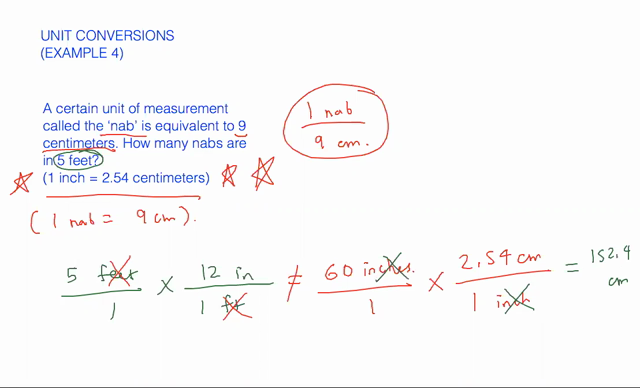 UNIT CONVERSIONS
(EXAMPLE 4)
A certain unit of measurement
called the 'nab' is equivalent to 9
centimeters. How many nabs are
in 5 feet?
(1 inch = 2.54 centimeters)
(1 nab = 9 cm).
1 nab
9 cm.
5 feet × 12 in ≠ 60 inches. × 2.54 cm = 152.4 cm
1 1 ft 1 1 inch